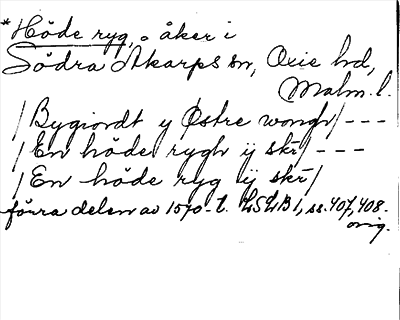 *Höde ryg, åker i
Södra Åkarps sn, Oxie hd,
Malm. l.
/Bygiordt y Østre wongh/---
/En höde rygh ÿ skr/---
/En höde ryg ÿ skr/
förra delen av 1570-t. LSLB 1, ss. 407, 408.
orig.